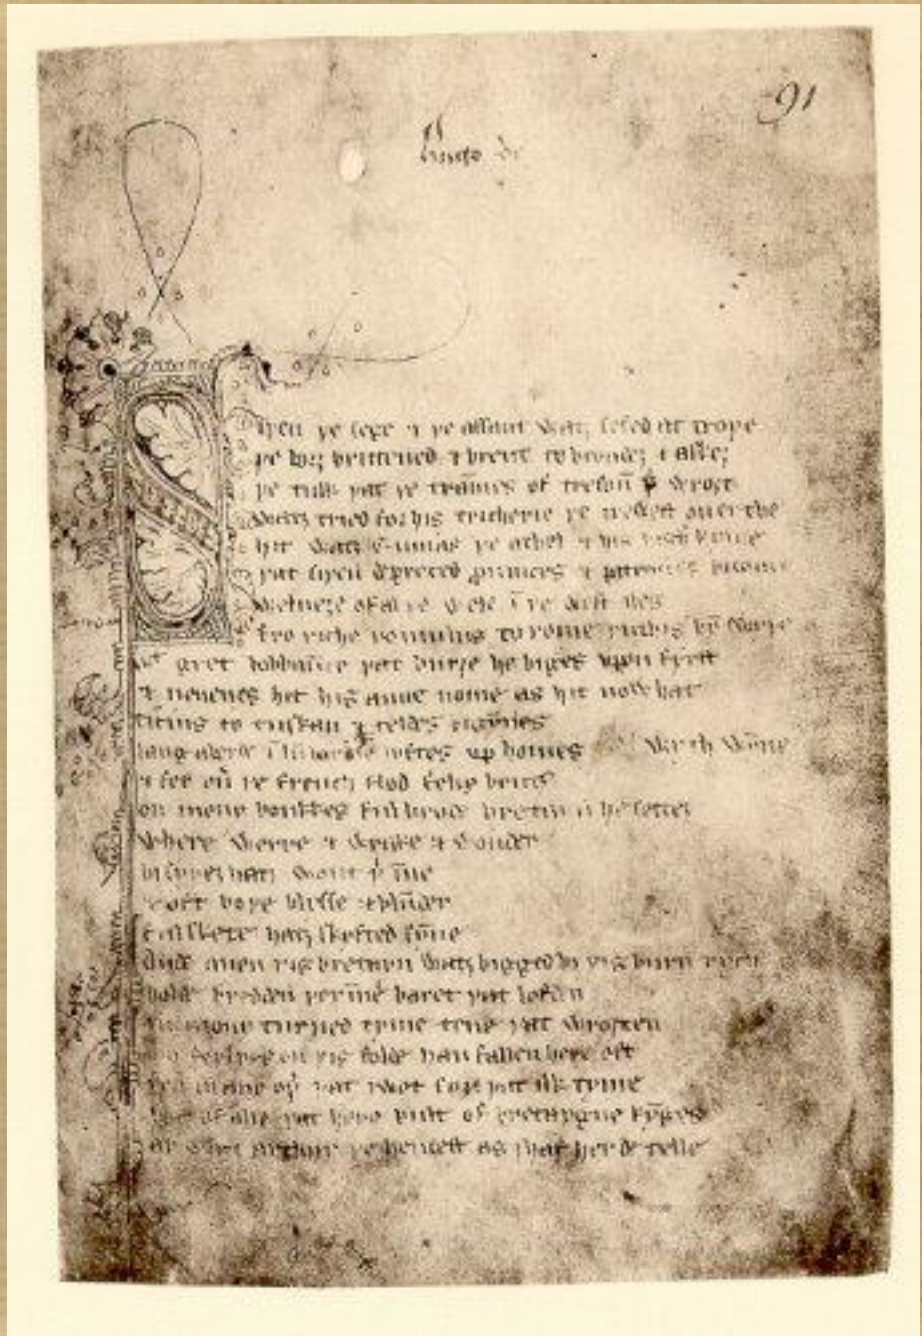 91
Hugo de
Siþen þe sege & þe assaut watz sesed at troye
þe borȝ brittened & brent to brondeȝ & askez
þe tulk þat þe trāmes of tresoū þ wroȝt
watz tried for his tricherie þe trewest on erthe
hit watz ennias þe athel & his highe kynde
þat siþen depreced prouinces & patrounes bicome
welneȝe of al þe wele ī þe west iles
fro riche romulus to rome ricchis hȳ swyþe
gret bobbaūce þat burȝe he biges vpon fyrst
& neuenes hit his aune nome as hit now hat
ticius to tuskan & teldes
langaberde ī lumbardie lyftes vp homes wyth wȳne
& fer ou þe french flod felix brut9
on mony bonkkes ful brode bretayn he settez
where werre & wrake & wonder
bi syþez hatz wont þ īne
& oft boþe blysse & blūder
ful skete hatz skyfted sȳne
Ande quen þis bretayn watz bigged bi þis burn rych
bolde bredden þer īne baret þat lofden
in mony turned tyme tene þat wroȝten
mo ferlyes on þis folde han fallen here oft
þen in any oþ þat I wot syn þat ilk tyme
bot of alle þat here bult of bretaygne kȳges
ay watz arthur þe hendest as I haf herde telle